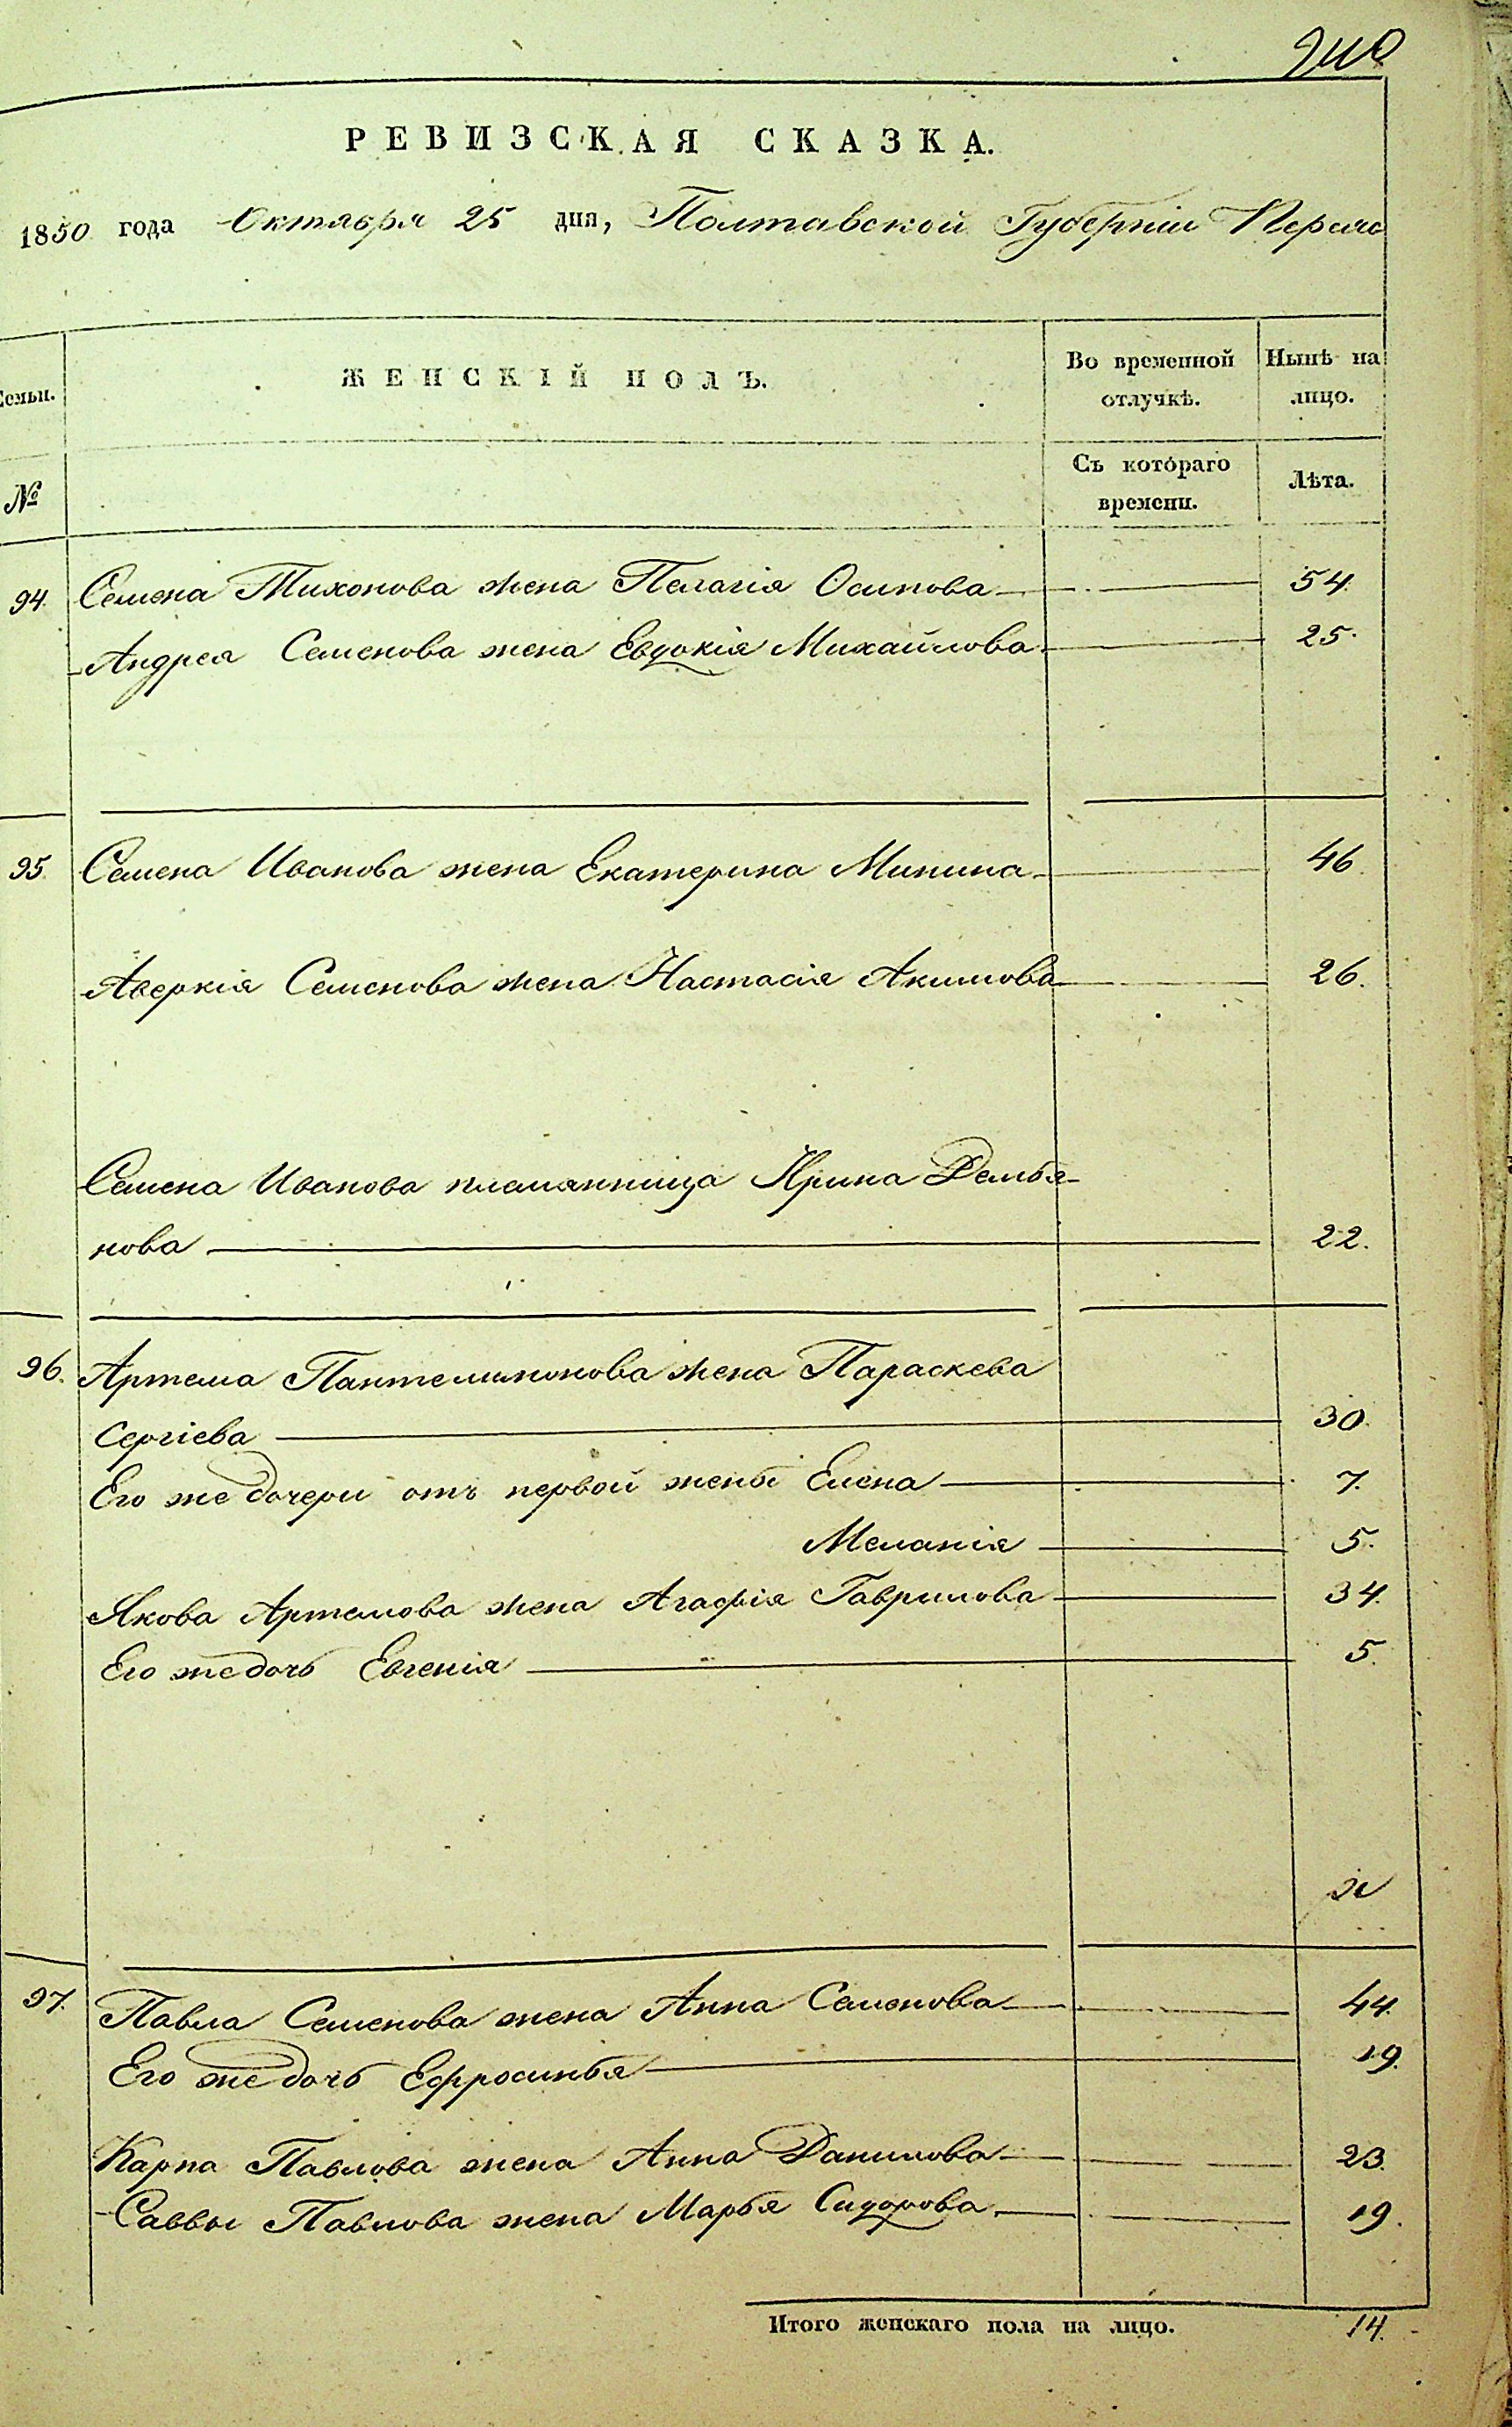 240
РЕВИЗСКАЯ СКАЗКА.
1850 года Октября 25 дня, Полтавской Губерніи
Семьи.
ЖЕНСКІЙ ПОЛЪ.
Во временной отлучкѣ.
Нынѣ на лицо.
№
Съ котораго времени.
Лѣта.
94. Семена Тихонова жена Пелагія Осипова 54.
Андрея Семенова жена Евдокія Михайлова 25.
95 Семена Иванова жена Екатерина Минина 46.
Аверкія Семенова жена Настасія Акимова 26.
Семена Иванова племянница Ирина Демья-
нова 22.
96. Артема Пантелимонова жена Параскева
Сергіева 30.
Его же дочери отъ первой жены Елена 7.
Меланія 5.
Якова Артемова жена Агафія Гаврилова 34.
Его же дочь Евгенія 5.
97. Павла Семенова жена Анна Семенова 44.
Его же дочь Ефросинья 19.
Карпа Павлова жена Анна Данилова 23.
Саввы Павлова жена Марья Сидорова 19.
Итого женскаго пола на лицо. 14.